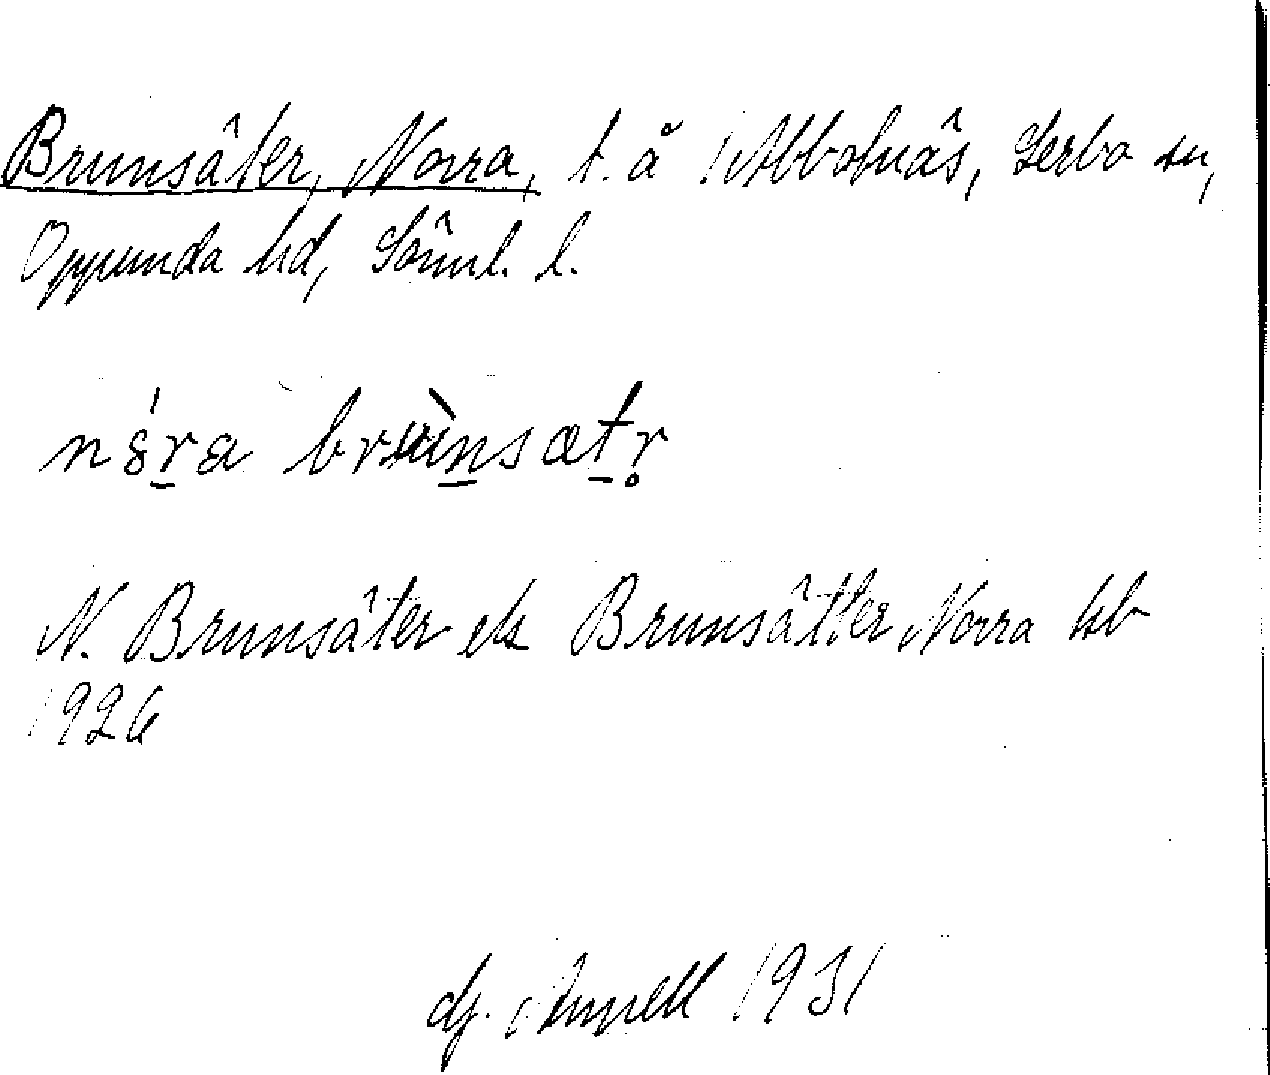 Brunsäter, Norra, t. å Abbotnäs, Lerbo sn,
Oppunda hd, Söml. l.
nǿra brùnsætr
N. Brunsäter ek Brunsätter Norra kb
1926
dj. Ampell 1931